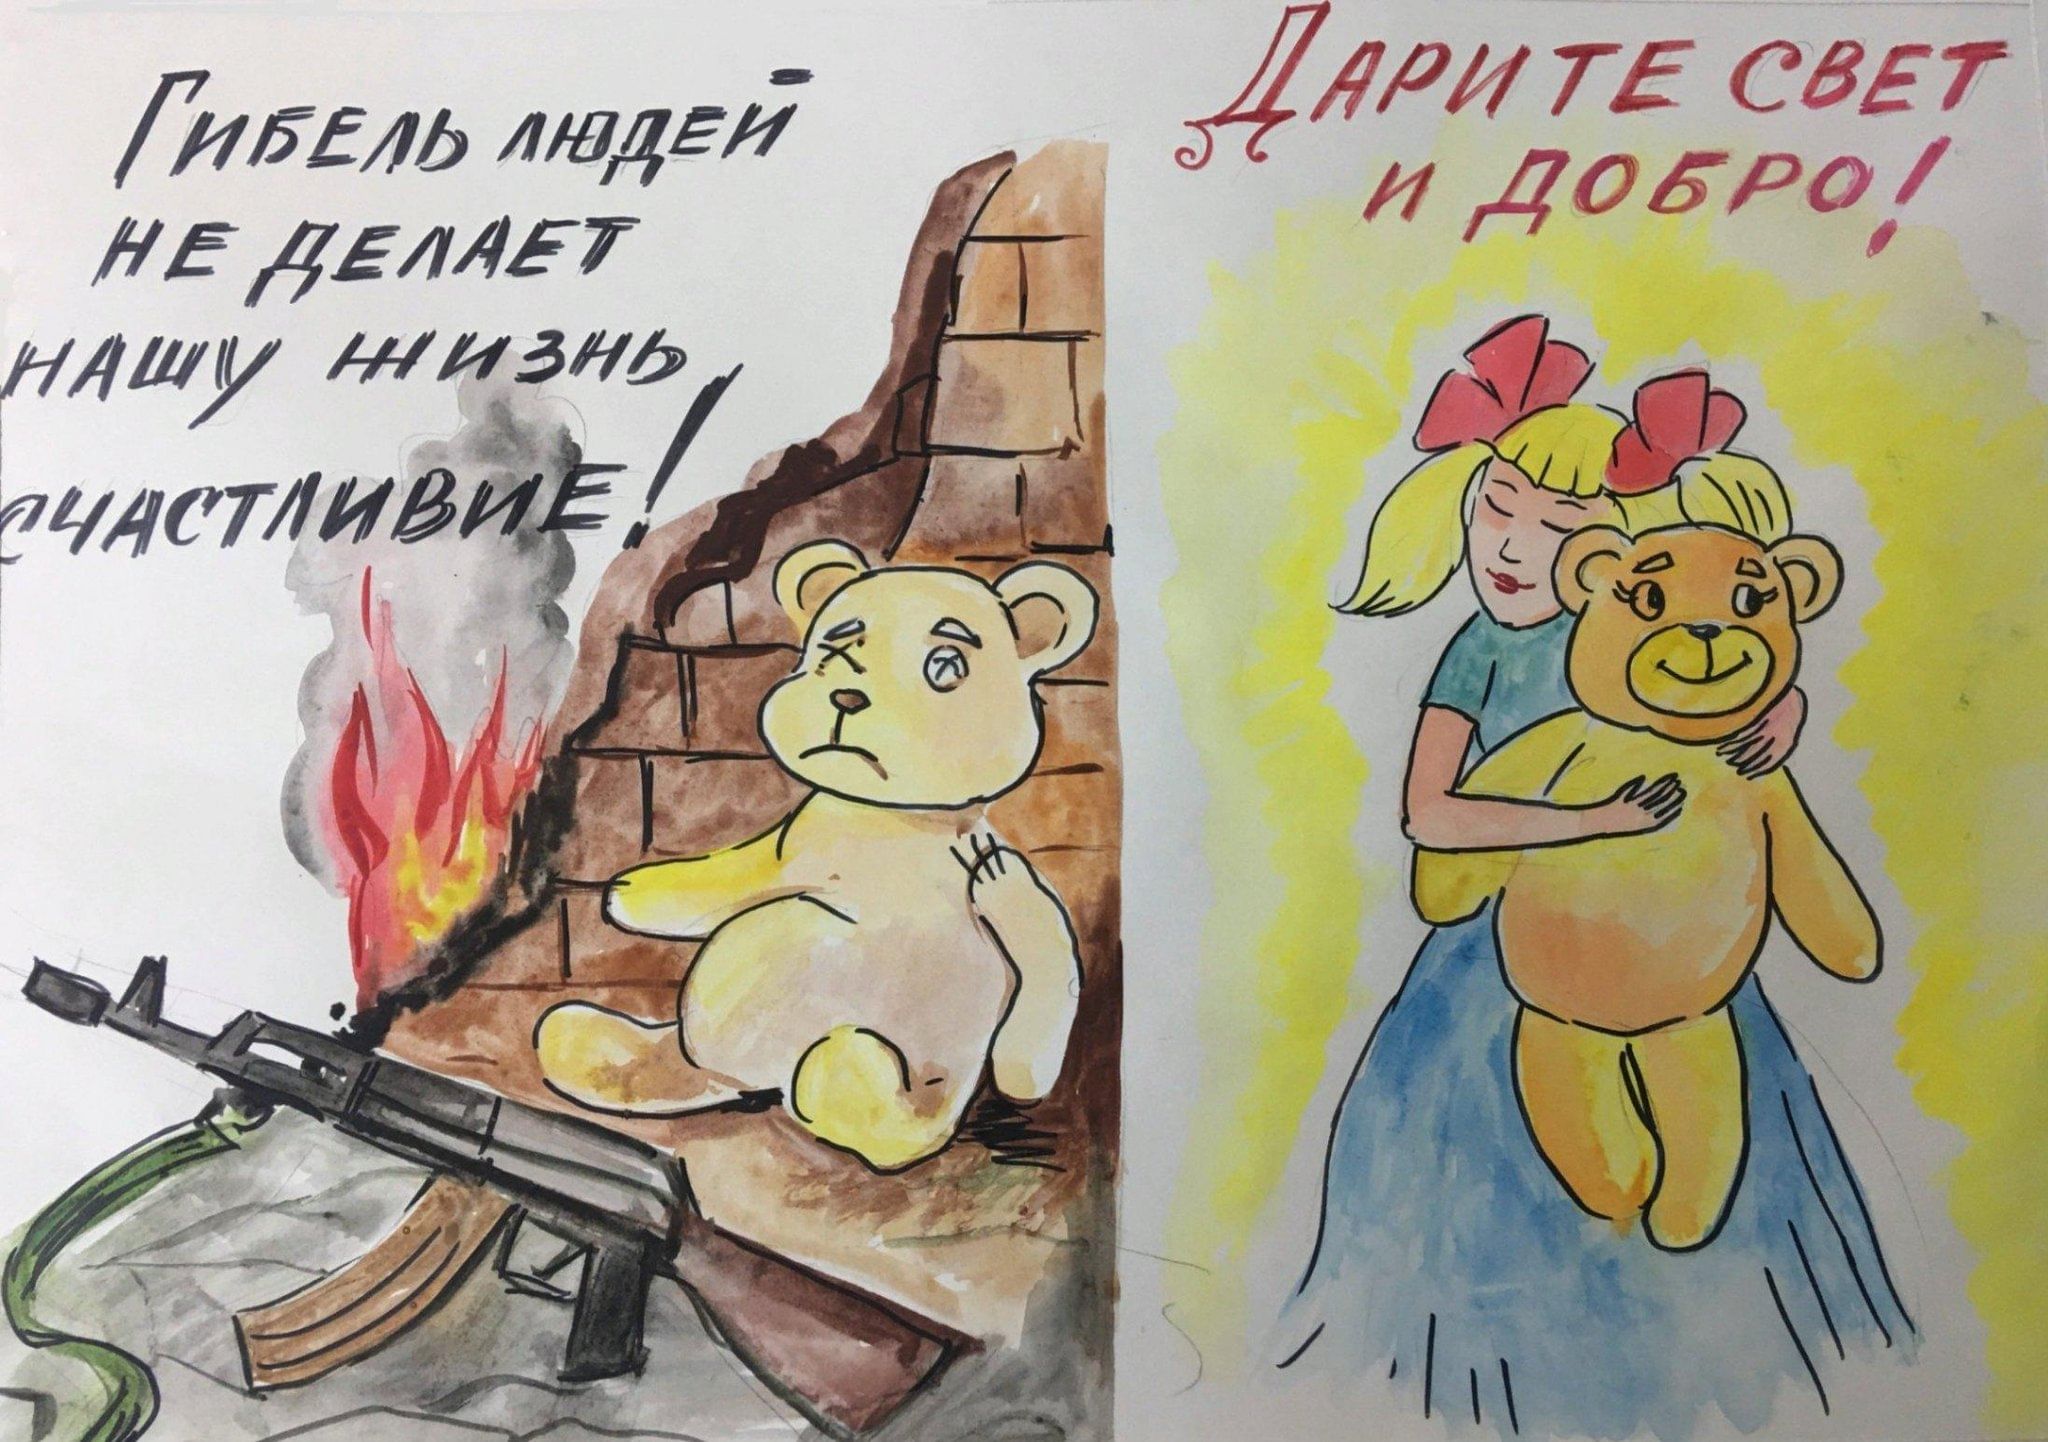 Гибель людей
не делает
нашу жизнь
счастливие!
Дарите свет
и добро!